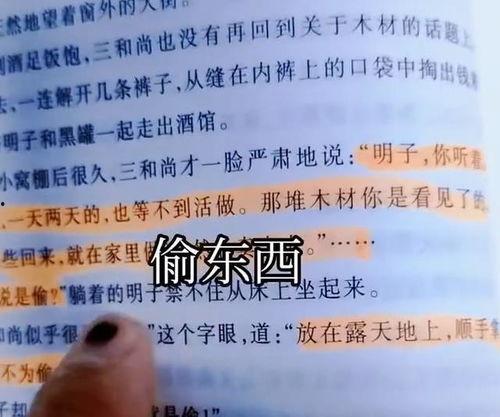 然地望着窗外的大街。
酒足饭饱，三和尚也没有再回到关于木材的话题上
，一连解开几条裤子，从缝在内裤上的口袋中掏出钱来
明子和黑罐一起走出酒馆。
小窝棚后很久，三和尚才一脸严肃地说：“明子，你听着
一天两天的，也等不到活做。那堆木材你是看见了的，
些回来，就在家里做
。”……
偷东西
说是偷？”躺着的明子禁不住从床上坐起来。
和尚似乎很
”这个字眼，道：“放在露天地上，顺手拿
不为偷
就是偷！”